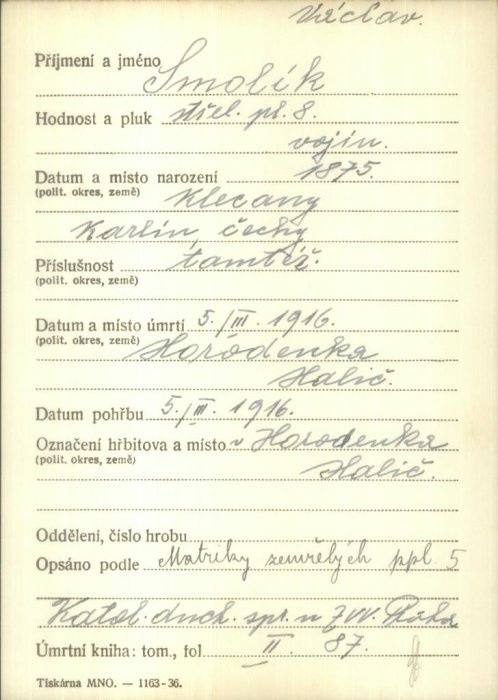 Václav.
Příjmení a jméno Smolík
Hodnost a pluk střel. pl. 8.
vojín.
Datum a místo narození 1875.
(polit. okres, země) Klecany
Karlín, čechy
Příslušnost tamtéž.
(polit. okres, země)
Datum a místo úmrtí 5./III. 1916.
(polit. okres, země) Horódenka
Halič.
Datum pohřbu 5./III. 1916.
Označení hřbitova a místo v Horodenka
(polit. okres, země) Halič.
Oddělení, číslo hrobu
Opsáno podle Matriky zemřelých ppl. 5
Katol. duch. spr. u ZVV. Praha
Úmrtní kniha: tom., fol II. 87.
Tiskárna MNO. — 1163-36.